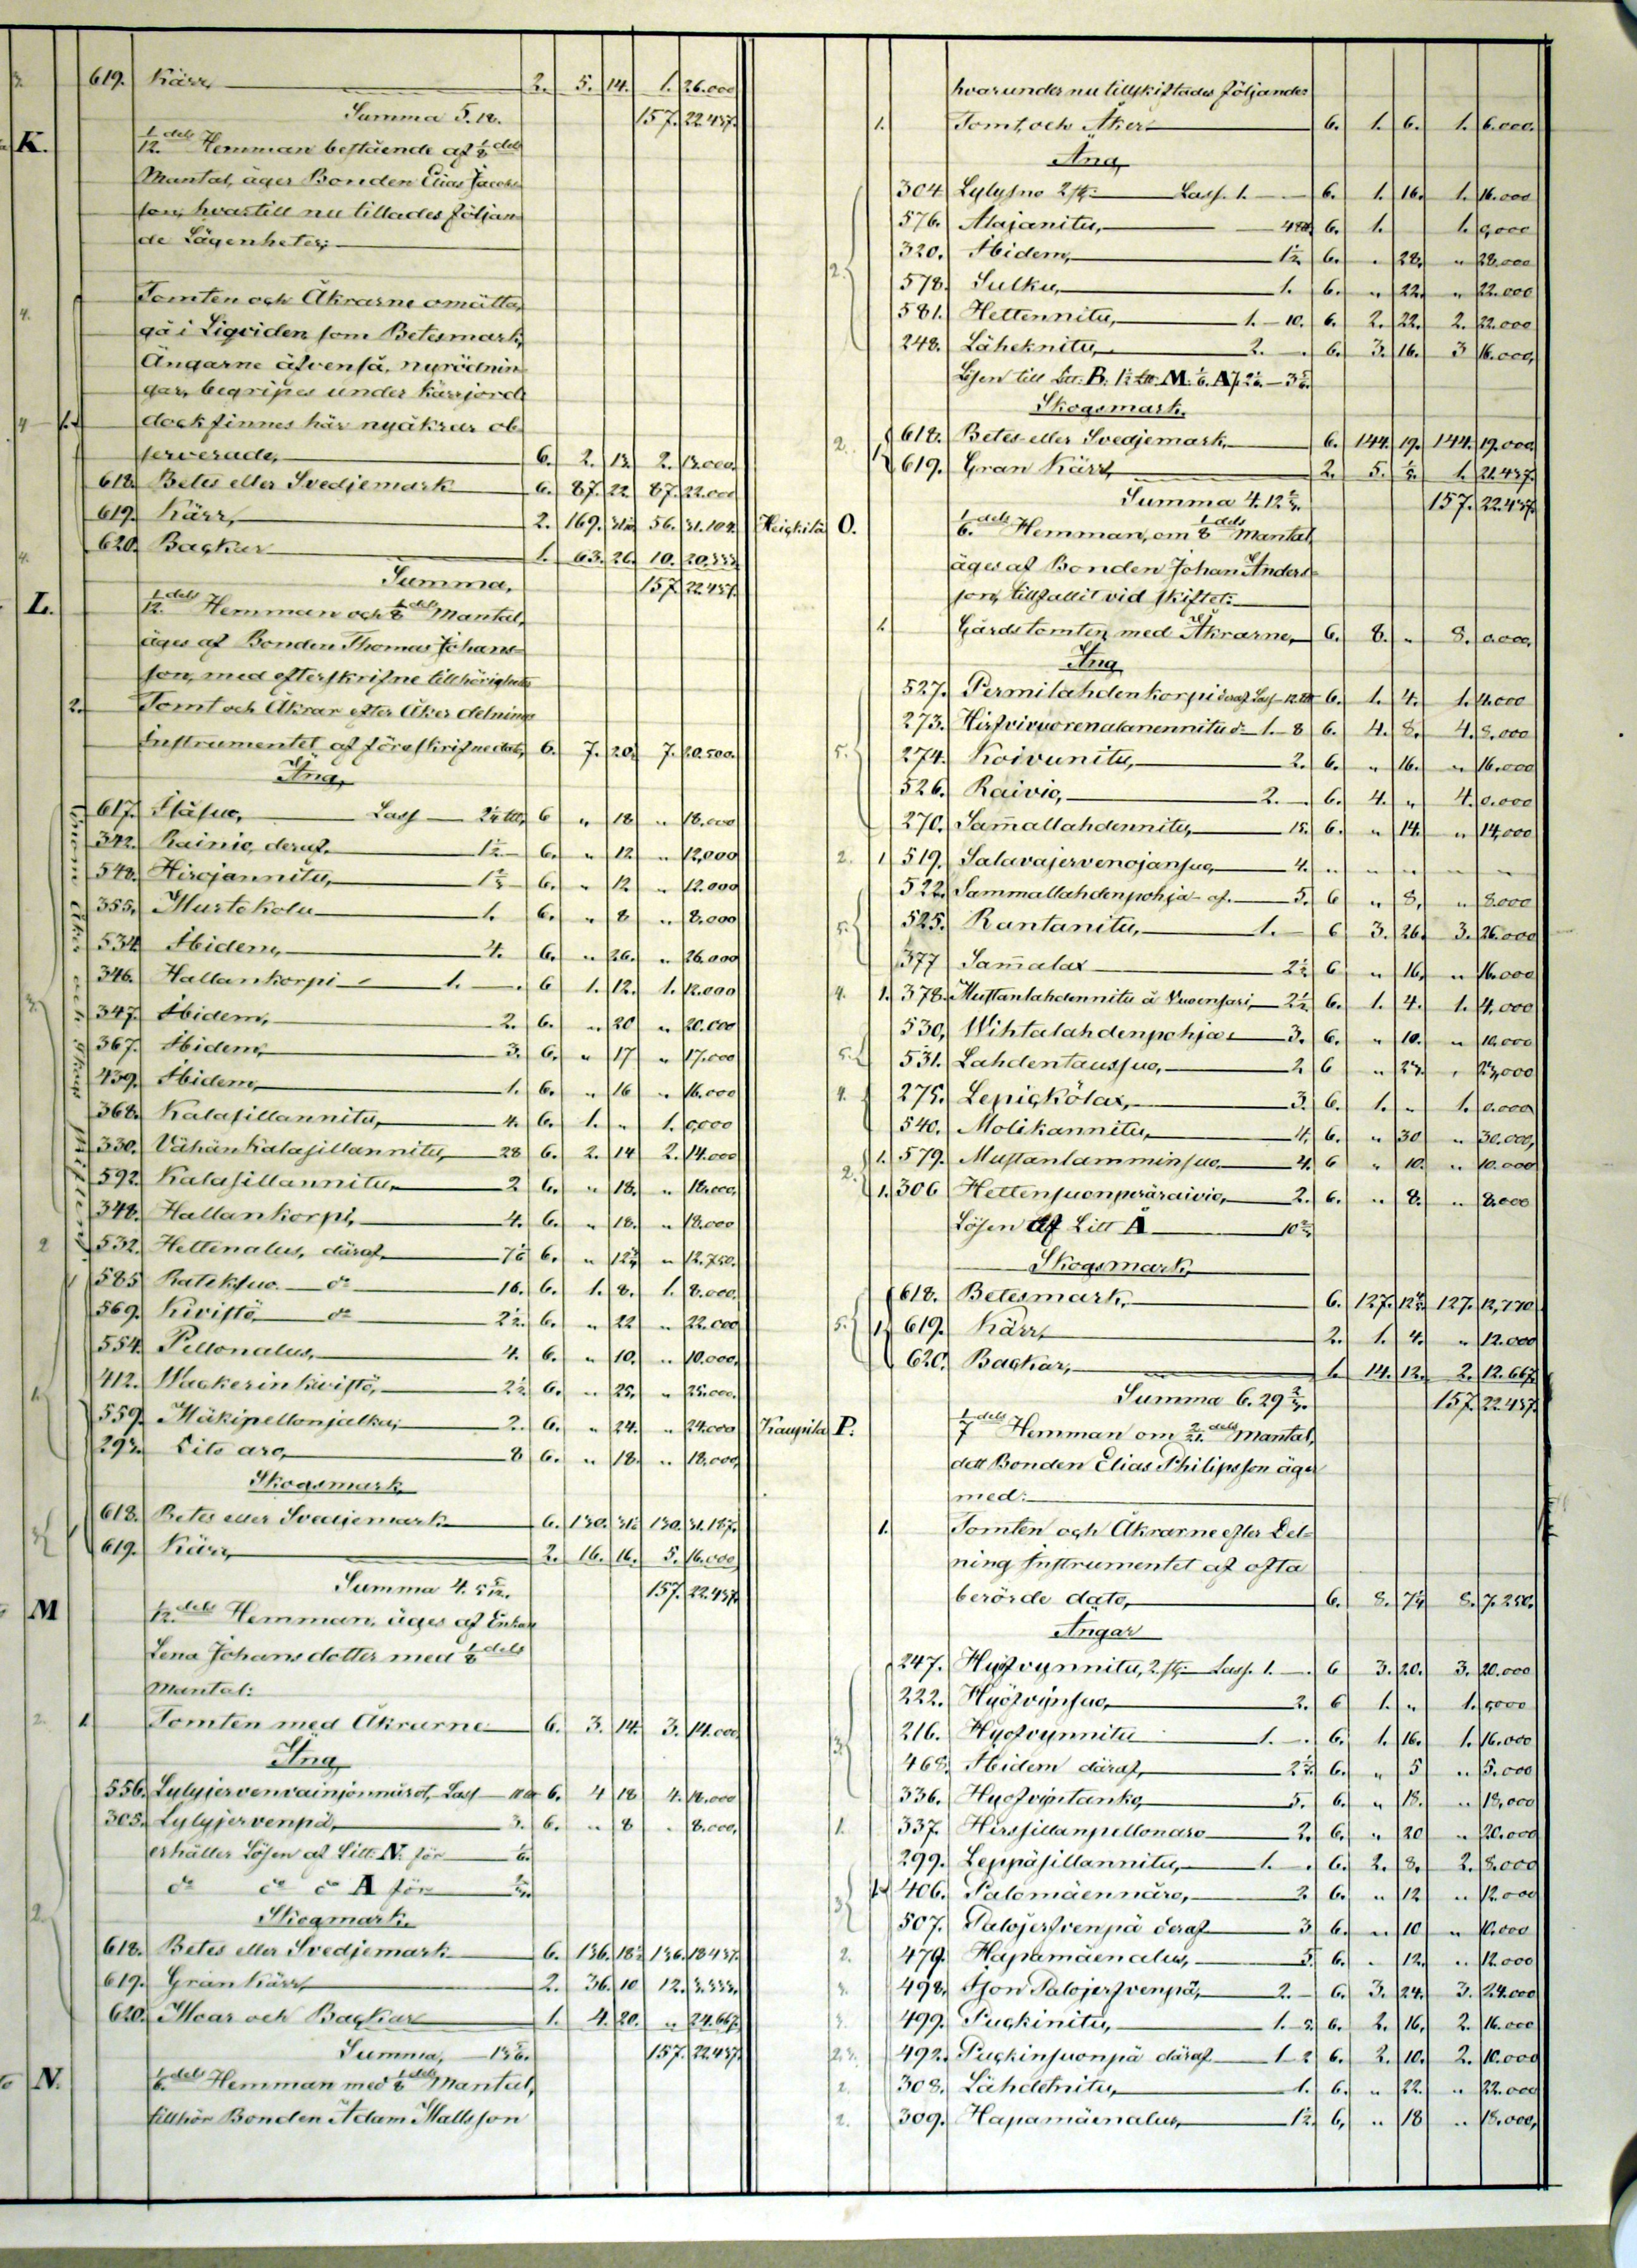 619. Kärr, 2. 5. 14. 1. 26.000
Summa 5.18. 157. 22.437.
K. 1/12 dels Hemman bestående af 1/8 dels
Mantal, äger Bonden Elias Jacobs
son, hvartill nu tillades följan
de Lägenheter;
Tomten och Åkrarne omätta,
gå i Liqviden som Betesmark,
Ängarne äfvenså, nyrödnin
gar, begripes under kärrjord,
dock finnes här nyåkrar ob
serverade, 6. 2. 13. 2. 13.000.
618. Betes eller Svedjemark 6. 87. 22 87. 22.000
619. Kärr, 2. 169. 56. 31.104.
620. Backar 1. 63. 26. 10. 20.333.
Summa, 157. 22.437.
L. 1/12 dels Hemman och 1/8 dels Mantal,
äges af Bonden Thomas Johans
son, med efterskrifne tillhörigheter
2. Tomt och Åkrar efter Åker delnings
Instrumentet af föreskrifne dato, 6. 7. 20 7. 20.500.
Äng,
617. Isåsuo, Lass 6 " 18 " 18.000
342. Rainio, deraf 1 1/2 6. " 12 " 12,000
548. Hirojannitu, 6. " 12 " 12.000
355. Mustokolu 1. 6. " 8 " 8.000
534. Ibidem, 4. 6. " 26. " 26.000
346. Hallankorpi 1. 6 1. 12. 1. 12.000
347. Ibidem, 2. 6. " 20 " 20.000
367. Ibidem, 3. 6. " 17 " 17.000
439. Ibidem, 1. 6. " 16 " 16.000
368. Kalasillannitu, 4. 6. 1. " 1. 0,000
330. Vähänkalasillannitu, 28 6. 2. 14 2. 14.000
592. Kalasillannitu, 2 6. " 18. " 18.000,
348. Hallankorpi, 4. 6. " 18. " 18.000
532. Hettenalus, däraf 6. " " 12.750.
585. Rateksuo do 16. 6. 1. 8. 1. 8.000.
569. Kivistö do 2 1/2. 6. " 22 " 22.000
554. Pellonalus, 4. 6. " 10. " 10.000,
412. Wackerinkivistö, 2 1/2 6. " 25. " 25.000.
559. Mäkipellonjalka, 2. 6. " 24. " 24.000
293. Lito aro, 8 6. " 18. " 18.000,
Skogsmark
618. Betes eller Svedjemark 6. 130. 130. 31.187.
619. Kärr, 2. 16. 16. 5. 16.000
Summa 4. 5 5/12. 157. 22.437.
M 1/12 dels Hemman, äges af Enkan
Lena Johansdotter med 1/8 dels
Mantal:
2. 1. Tomten med Åkrarne 6. 3. 14. 3. 14.000
Äng
556. Lass 6. 4 18 4. 18.000
303. Lylyjervenpä, 3. 6. " 8 " 8.000,
erhåller Lösen af Litt. N. för 1/6.
do do do A för
Skogmark.
618. Betes eller Svedjemark 6. 136. 18 1/2 136. 18.437.
619. Gran Kärr, 2. 36. 10 12. 3.333.
620. Moar och Backar 1. 4. 20. " 24.667.
Summa, 157. 22.437.
N. 1/6. dels Hemman med 1/8 dels Mantal,
tillhör Bonden Adam Mattsson
hvarunder nu tillskiftades följande
1. Tomt, och Åker 6. 1. 6. 1. 6.000.
Äng
304 Lylysuo 2 st: Lass. 1. 6. 1. 16. 1. 16.000
576. Alajanitu, 6. 1. 1. 0,000
320. Ibidem, 1 1/2 6. " 28. " 28.000
578. Sulku, 1. 6. " 22. " 22.000
581. Hettennitu, 1. 10. 6. 2. 22. 2. 22.000
248. Läheknitu, 2. 6. 3. 16. 3 16.000,
Lösen till Litt. B. 1 1/2 M. 1/6. A.
Skogsmark.
2. 618. Betes eller Svedjemark, 6. 144. 19. 144. 19.000
619. Gran Kärr, 2. 5. 1. 21.437.
Summa 4. 12 157. 22.437.
Heickilä O. 1/6. dels Hemman, om 1/8 dels Mantal,
äges af Bonden Johan Anders
son, tillfallit vid skiftet:
1. Gårdstomten med Åkrarne, 6. 8. " 8. 0.000,
Äng
527. Permilahdenkorpi deraf Lass 6. 1. 4. 1. 4.000
273. do 1. 8 6. 4. 8. 4. 8.000
274. Koivunitu, 2. 6. " 16. " 16.000
526. Raivio, 2. 6. 4. " 4. 0.000
270. Sam̄allahdennitu, 15. 6. " 14. " 14,000
2. 1 519. Salavajervenojansuo, 4. " " " " "
522. Sammallahdenpohja af 5. 6 " 8. " 8.000
525. Rantanitu, 1. 6 3. 26. 3. 26.000
377 Sam̄alax 2 1/2 6 " 16. " 16.000
4. 1. 378. Mustanlahdennitu å Vuorensari, 2 1/2 6. 1. 4. 1. 4.000
530. Wihtalahdenpohja 3. 6. " 10. " 10.000
531. Lahdentaussuo, 2 6 " 23. " 23,000
4. 275. Lepickölax, 3. 6. 1. " 1. 0.000
540. Molikannitu, 4. 6. " 30 " 30.000,
1. 579. Mustanlamminsuo 4. 6 " 10. " 10.000
1. 306 Hettensuonperäraivio, 2. 6. " 8. " 8.000
Lösen af Litt A
Skogsmark,
618. Betesmark, 6. 127. 127. 12,770
5. 1. 619. Kärr, 2. 1. 4. " 12.000
620. Backar, 1. 14. 12. 2. 12.667.
Summa 6. 29 157. 22.437.
Kaupila P. 1/7 dels Hemman om 2/21. dels Mantal,
dett Bonden Elias Philipsson äger
med:
1. Tomten och Åkrarne efter Del=
ning Instrumentet af ofta
berörde dato, 6. 8. 7 1/4 8. 7.250.
Ängar
247. Hyöfvynnitu, 2. st: Lass. 1. 6 3. 20. 3. 20.000
222. Hyöfvynsuo, 2. 6 1. " 1. 0,000
216. Hyöfvynnitu 1. 6. 1. 16. 1. 16.000
468. Ibidem däraf, 6. " 5 " 5.000
336. Hyöfvintanko, 5. 6. " 18. " 18,000
1. 337. Hirssillanpellonaro 2. 6. " 20 " 20.000
299. Leppäsillannitu, 1. 6. 2. 8. 2. 8.000
406. Palomäennäro, 2 6. " 12 " 12.000
507. Palojerfvenpä deraf 3 6. " 10 " 10.000
2. 479. Hapamäenalus, 5 6. " 12. " 12.000
3. 498. Ison Palojerfvenpä, 2. 6. 3. 24. 3. 24.000
3. 499. Puckinitu, 1. 2. 6. 2. 16. 2. 16.000
2.3. 492. Puckinsuonpä däraf 1 2 6. 2. 10. 2. 10.000
2. 308. Lähdetnitu, 1. 6. " 22. " 22.000
2. 309. Hapamäenalus, 1 1/2. 6. " 18 " 18.000,